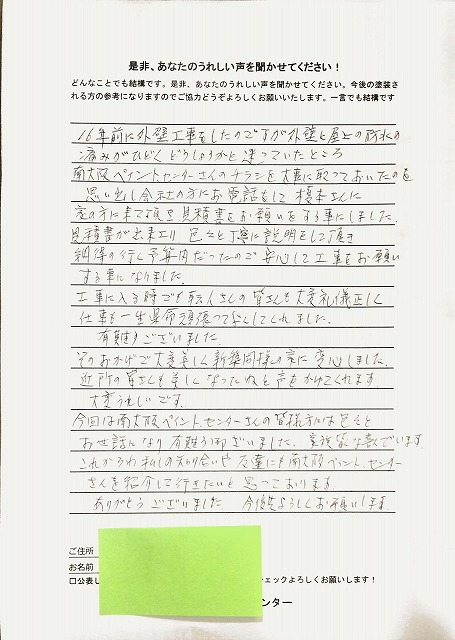 是非、あなたのうれしい声を聞かせてください！
どんなことでも結構です。是非、あなたのうれしい声を聞かせてください。今後の塗装さ
れる方の参考になりますのでご協力どうぞよろしくお願いいたします。一言でも結構です
16年前に外壁工事をしたのですが外壁と屋上の防水の
痛みがひどく どうしようかと迷っていたところ
南大阪ペイントセンターさんのチラシを大事に取っておいたのを
思い出し会社の方にお電話をして 榎本さんに
家の方に来て頂き見積書をお願いをする事にしました。
見積書が出来上り 色々と丁寧に説明をして頂き
納得の行く予算内だったので安心して工事をお願い
する事になりました。
工事に入る時でも職人さんの皆さんも大変礼儀正しく
仕事も一生懸命頑張って下してくれました。
有難うございました。
そのおかげで大変美しく新築同様の家に変心しました。
近所の皆さんも美しくなったねと声もかけてくれます。
大変うれしいです。
今回は南大阪ペイントセンターさんの皆様方には色々と
お世話になり有難う御ざいました。家族皆な喜んでいます
これからわ私しの知り合いや友達にも南大阪ペイントセンター
さんを紹介して行きたいと思っております
ありがとうございました 今後共よろしくお願いします。
ご住所
お名前
口公表し
チェックよろしくお願いします！
ンター